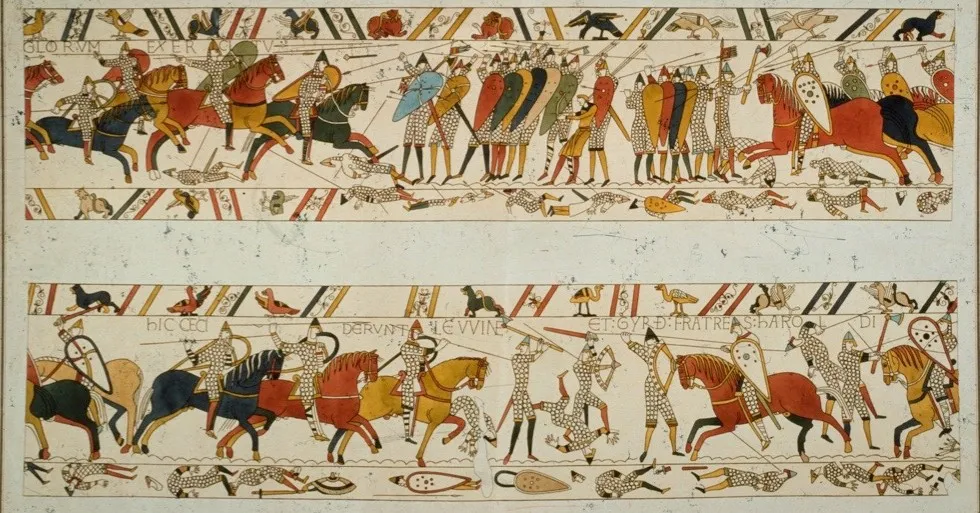 GLORVM EXER
HIC CECI DERVNT LEVVINE ET: GYRÐ: FRATRES: HARO DI